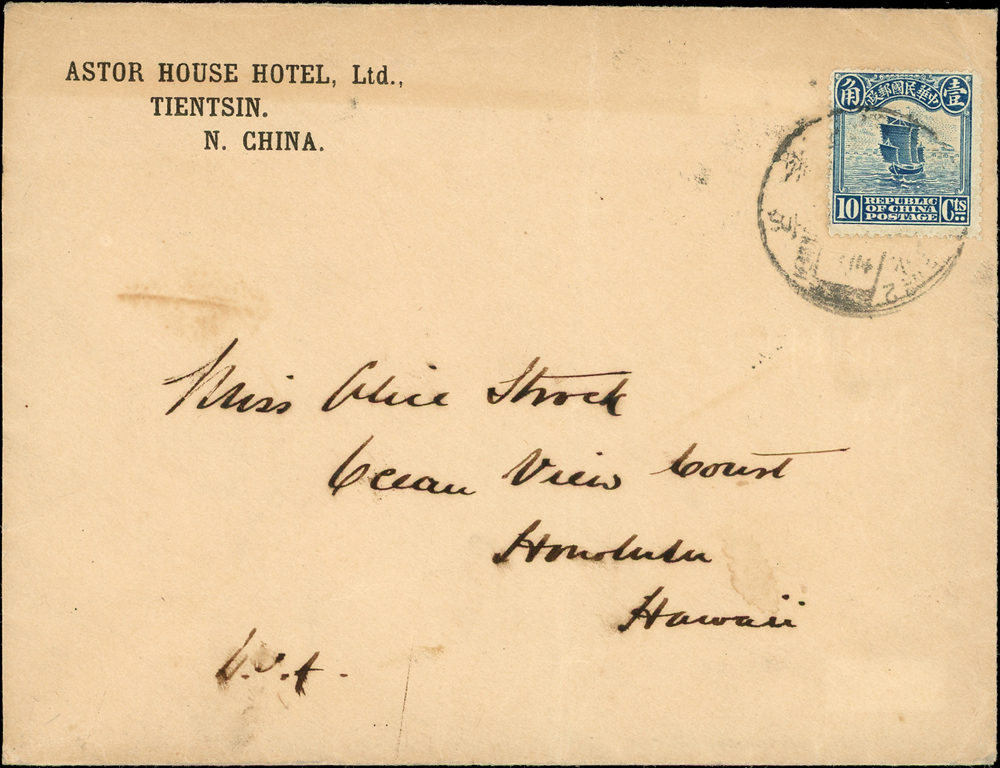 ASTOR HOUSE HOTEL, Ltd.,
TIENTSIN.
N. CHINA.
角 中華民國郵政 壹
10 REPUBLIC OF CHINA POSTAGE Cts
Miss Alice Strock
Ocean View Court
Honolulu
Hawaii